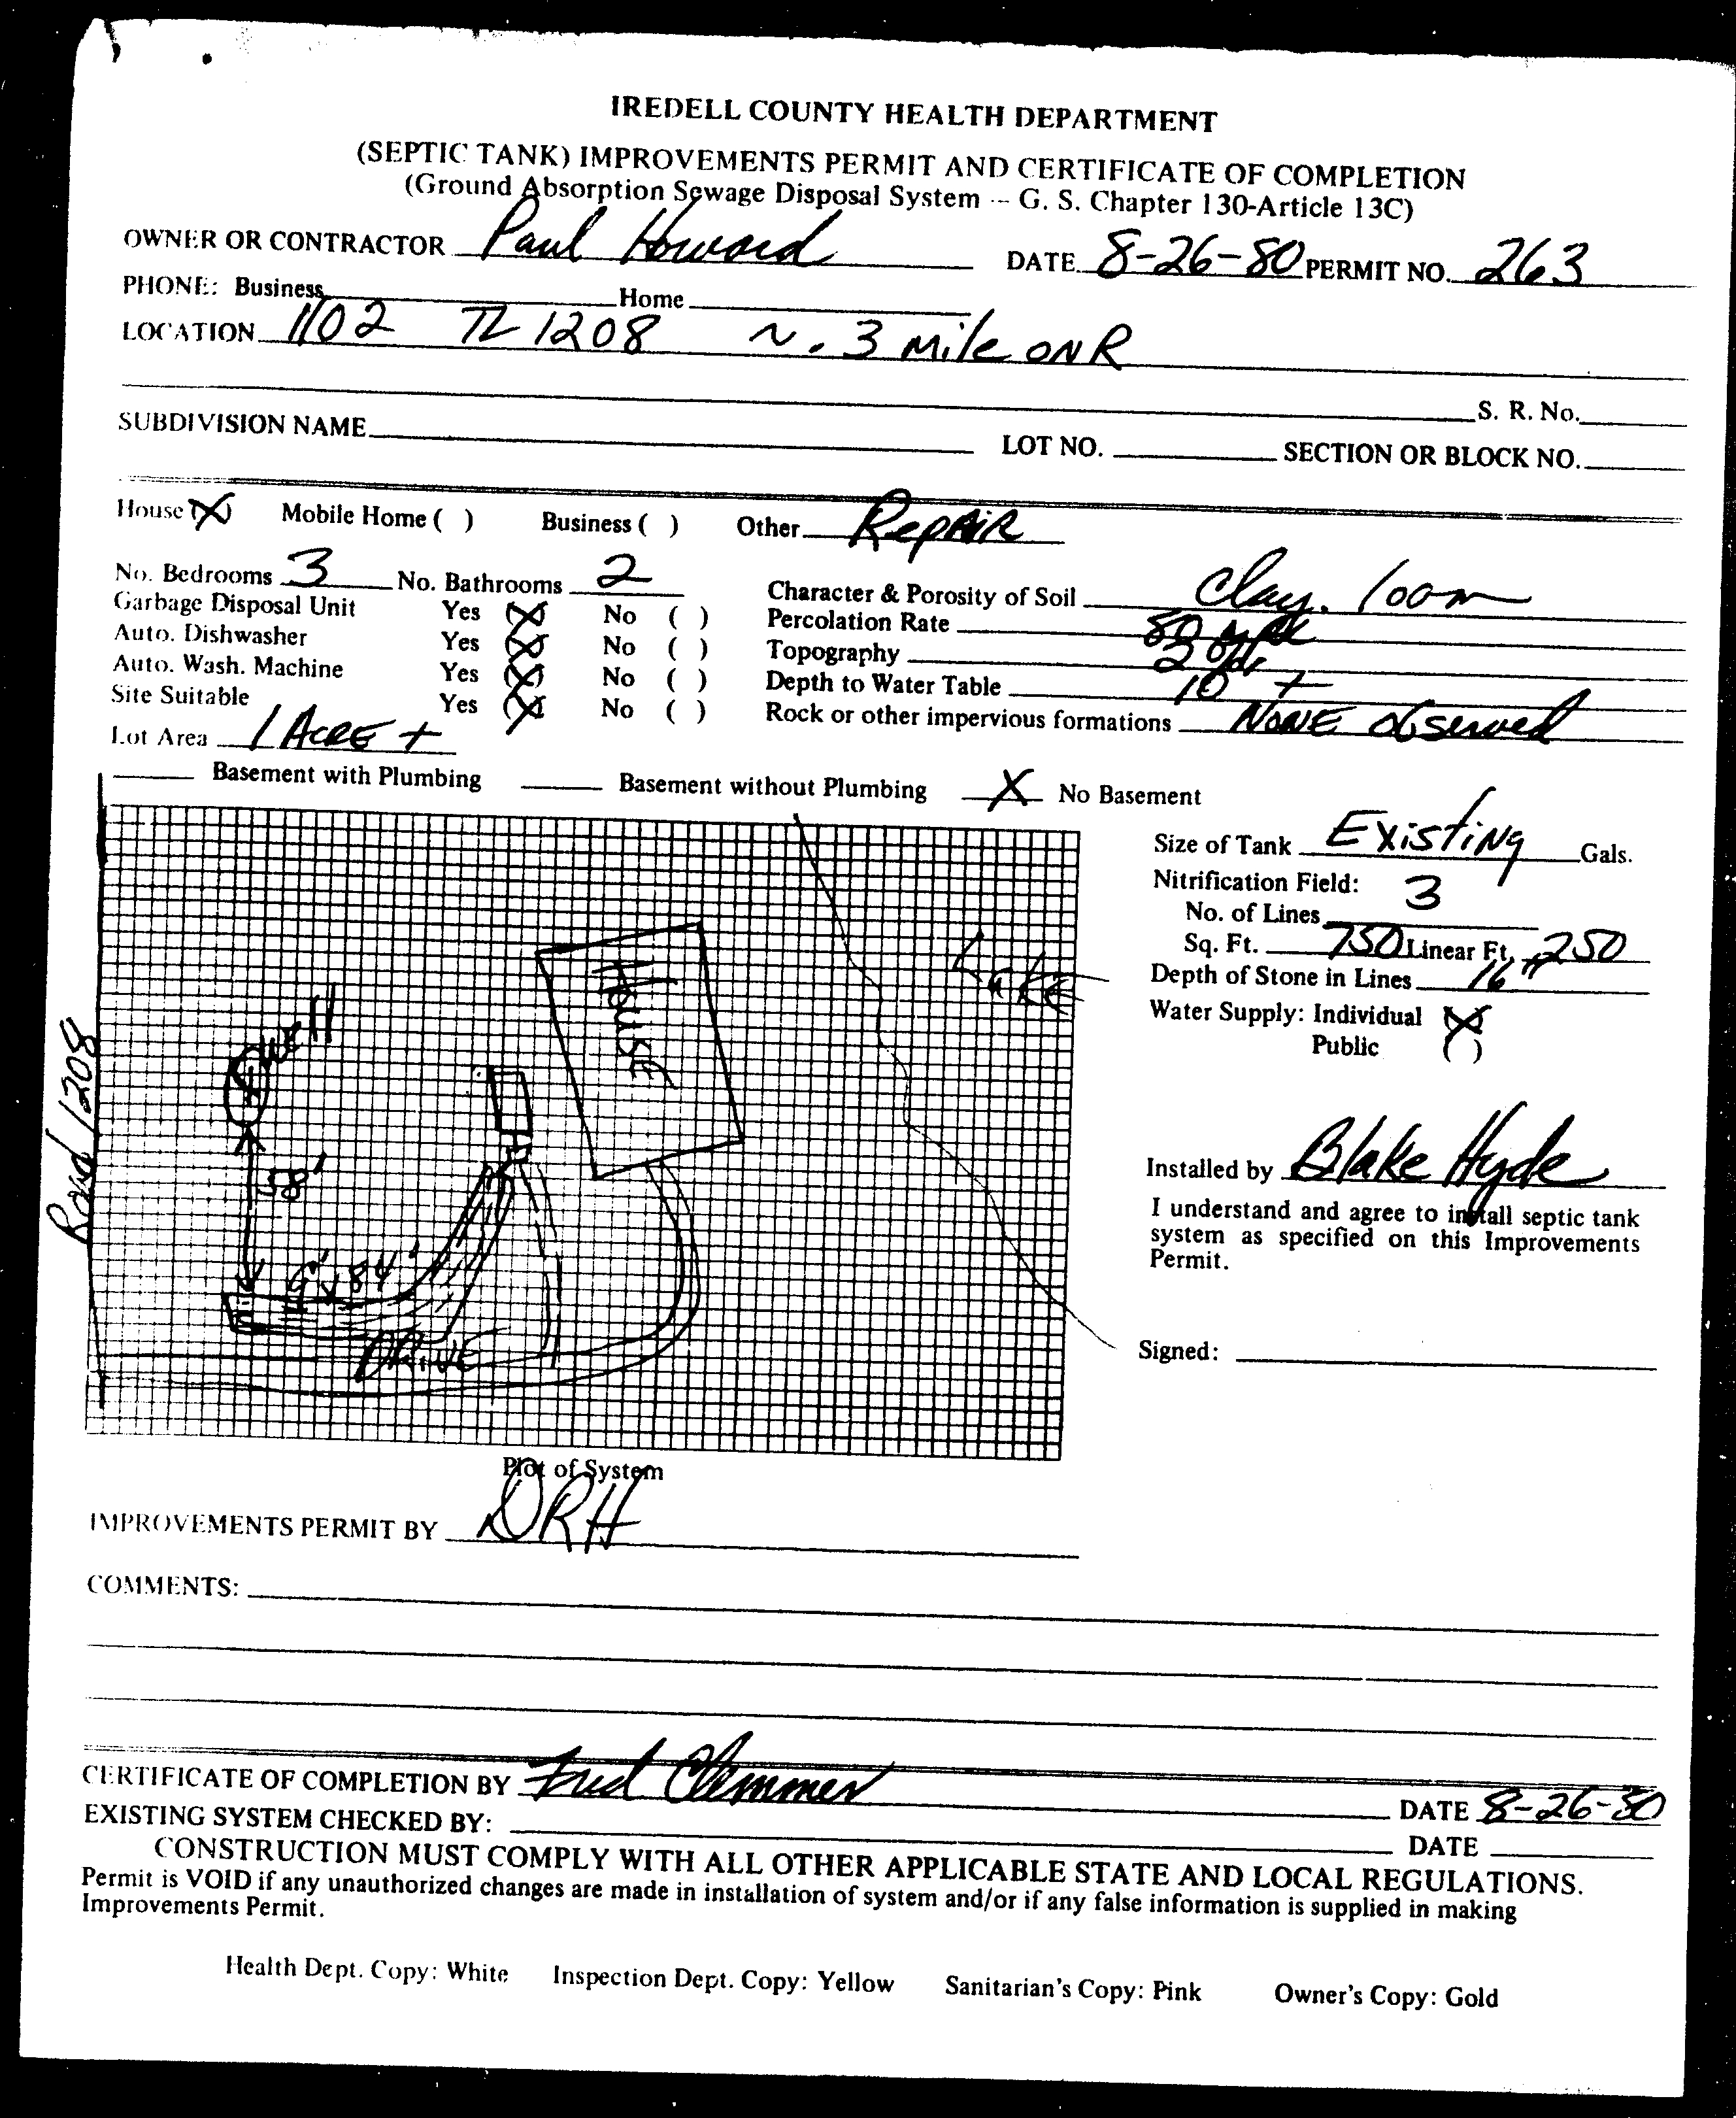 IREDELL COUNTY HEALTH DEPARTMENT
(SEPTIC TANK) IMPROVEMENTS PERMIT AND CERTIFICATE OF COMPLETION
(Ground Absorption Sewage Disposal System -- G. S. Chapter 130-Article 13C)
OWNER OR CONTRACTOR Paul Howard DATE 8-26-80 PERMIT NO. 263
PHONE: Business Home
LOCATION 1102 TL 1208 ~ .3 Mile ON R
S. R. No.
SUBDIVISION NAME LOT NO. SECTION OR BLOCK NO.
House (X) Mobile Home ( ) Business ( ) Other Repair
No. Bedrooms 3 No. Bathrooms 2 Character & Porosity of Soil Clay. loam
Garbage Disposal Unit Yes (X) No ( ) Percolation Rate 80
Auto. Dishwasher Yes (X) No ( ) Topography
Auto. Wash. Machine Yes (X) No ( ) Depth to Water Table 10 +
Site Suitable Yes (X) No ( ) Rock or other impervious formations NONE observed
Lot Area 1 ACRE +
Basement with Plumbing Basement without Plumbing X No Basement
Size of Tank Existing Gals.
Nitrification Field:
No. of Lines 3
Sq. Ft. 750 Linear Ft. 250
Depth of Stone in Lines 16"
Water Supply: Individual (X)
Public ( )
Lake
House
Well
Road 1208
58'
84'
DRIVE
Installed by Blake Hyde
I understand and agree to install septic tank
system as specified on this Improvements
Permit.
Signed:
Plot of System
IMPROVEMENTS PERMIT BY DRH
COMMENTS:
CERTIFICATE OF COMPLETION BY Fred Clemmer DATE 8-26-80
EXISTING SYSTEM CHECKED BY: DATE
CONSTRUCTION MUST COMPLY WITH ALL OTHER APPLICABLE STATE AND LOCAL REGULATIONS.
Permit is VOID if any unauthorized changes are made in installation of system and/or if any false information is supplied in making
Improvements Permit.
Health Dept. Copy: White Inspection Dept. Copy: Yellow Sanitarian's Copy: Pink Owner's Copy: Gold